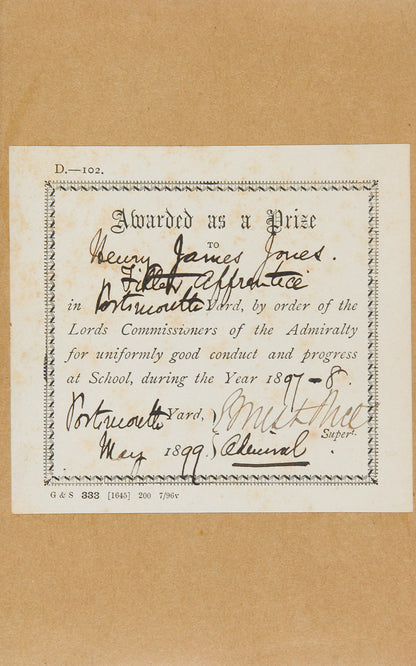 D.—102.
Awarded as a Prize
TO
Henry James Jones.
Fitter Apprentice
in Portsmouth Yard, by order of the
Lords Commissioners of the Admiralty
for uniformly good conduct and progress
at School, during the Year 1897-8.
Portsmouth Yard,
May 1899. Admiral Supert.
G & S 333 [1645] 200 7/96v